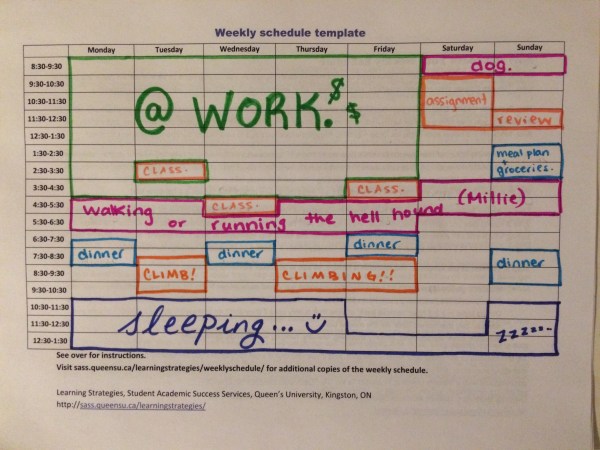 Weekly schedule template
Monday Tuesday Wednesday Thursday Friday Saturday Sunday
8:30-9:30 dog.
9:30-10:30
@ WORK. $ $ assignment
10:30-11:30
11:30-12:30 review
12:30-1:30
1:30-2:30 meal plan
+ groceries.
2:30-3:30 CLASS.
3:30-4:30 CLASS.
4:30-5:30 CLASS. (Millie)
walking or running the hell hound
5:30-6:30
6:30-7:30 dinner dinner dinner
7:30-8:30 dinner
8:30-9:30 CLIMB! CLIMBING!!
9:30-10:30
10:30-11:30
sleeping... zzzzz...
11:30-12:30
12:30-1:30
See over for instructions.
Visit sass.queensu.ca/learningstrategies/weeklyschedule/ for additional copies of the weekly schedule.
Learning Strategies, Student Academic Success Services, Queen's University, Kingston, ON
http://sass.queensu.ca/learningstrategies/